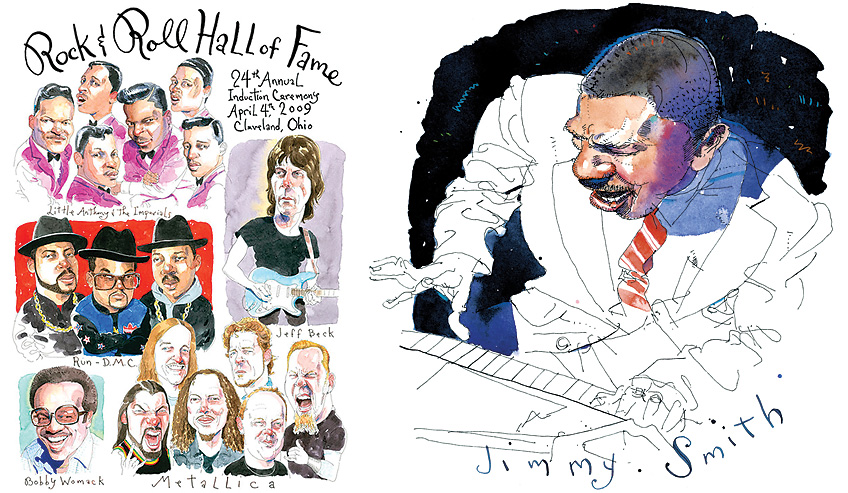 Rock & Roll Hall of Fame
24th Annual
Induction Ceremony
April 4th, 2009
Claveland, Ohio
Little Anthony & the Imperials
Jeff Beck
Run-D.M.C.
Bobby Womack
Metallica
Jimmy. Smith